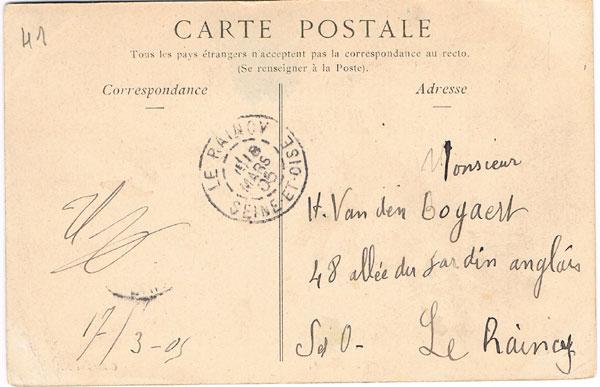 41
CARTE POSTALE
Tous les pays étrangers n'acceptent pas la correspondance au recto.
(Se renseigner à la Poste).
Correspondance
Adresse
LE RAINCY
18
MARS
05
SEINE-ET-OISE
Monsieur
H. Van den Bogaert
48 allée du Jardin anglais
S et O - Le Raincy
17/3-05